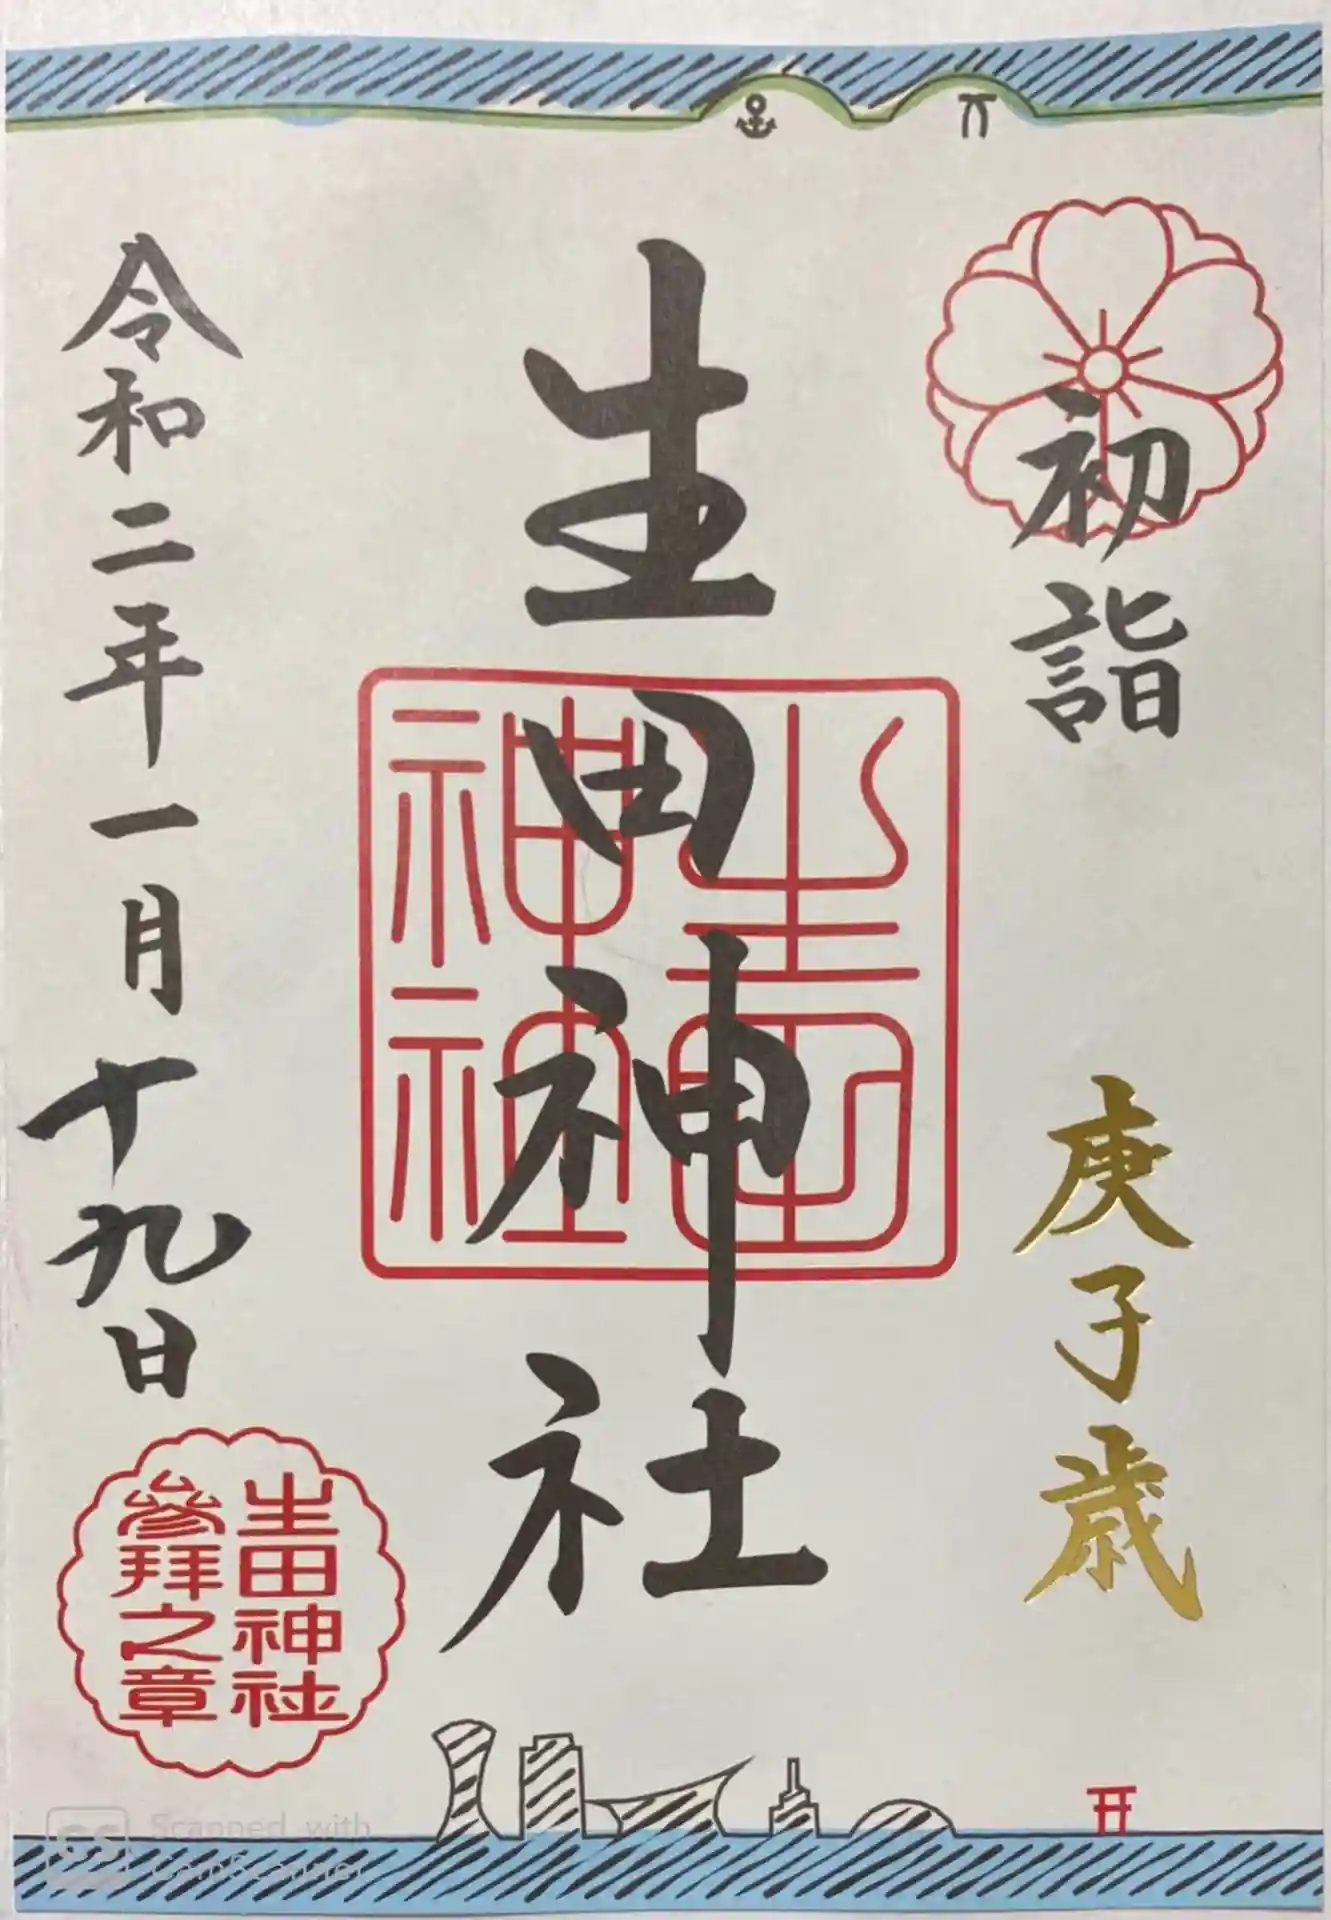 初詣
庚子歳
生田神社
生田
神社
令和二年一月十九日
生田神社
參拜之章
Scanned with
CamScanner